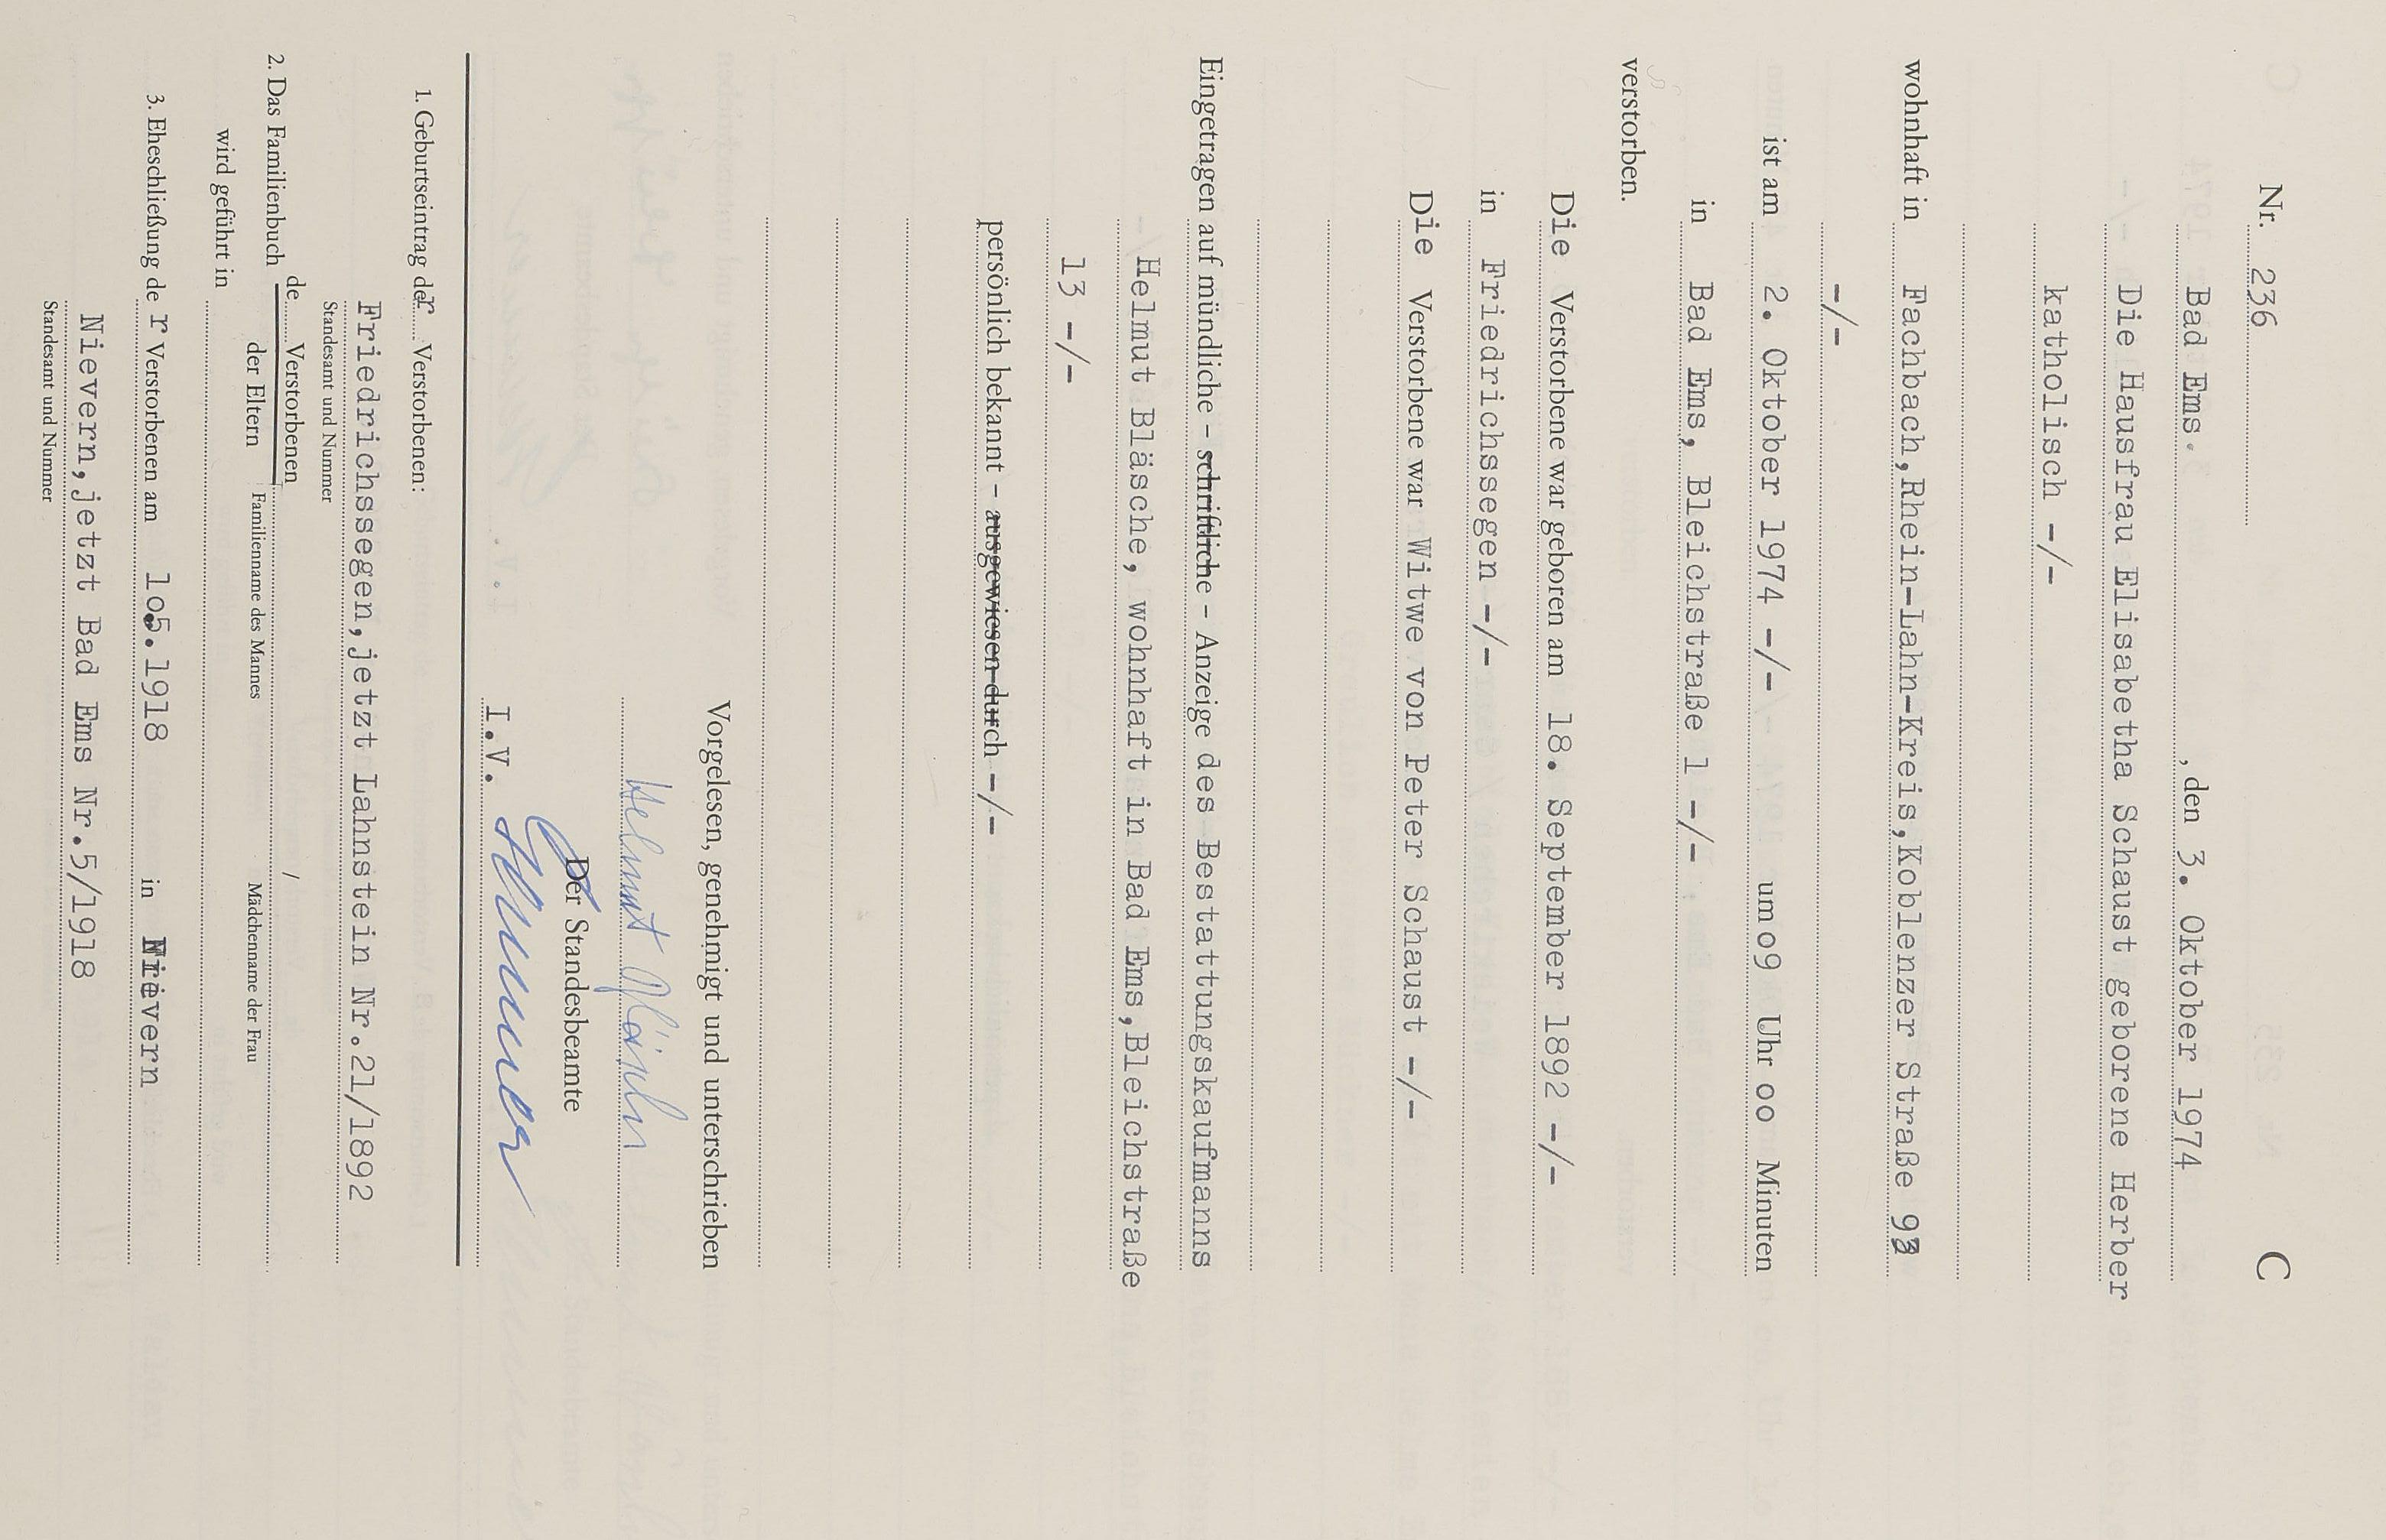 Nr. 236 C
Bad Ems. , den 3. Oktober 1974
Die Hausfrau Elisabetha Schaust geborene Herber
katholisch -/-
wohnhaft in Fachbach,Rhein-Lahn-Kreis,Koblenzer Straße 93
-/-
ist am 2. Oktober 1974 -/- um o9 Uhr oo Minuten
in Bad Ems, Bleichstraße 1 -/-
verstorben.
Die Verstorbene war geboren am 18. September 1892 -/-
in Friedrichssegen -/-
Die Verstorbene war Witwe von Peter Schaust -/-
Eingetragen auf mündliche - schriftliche - Anzeige des Bestattungskaufmanns
Helmut Bläsche, wohnhaft in Bad Ems,Bleichstraße
13 -/-
persönlich bekannt - ausgewiesen durch -/-
Vorgelesen, genehmigt und unterschrieben
Helmut Bläsche
Der Standesbeamte
I.V.
1. Geburtseintrag der Verstorbenen:
Friedrichssegen,jetzt Lahnstein Nr.21/1892
Standesamt und Nummer
de Verstorbenen /
2. Das Familienbuch
der Eltern Familienname des Mannes Mädchenname der Frau
wird geführt in
3. Eheschließung de r Verstorbenen am 1o.5.1918 in Nievern
Nievern,jetzt Bad Ems Nr.5/1918
Standesamt und Nummer